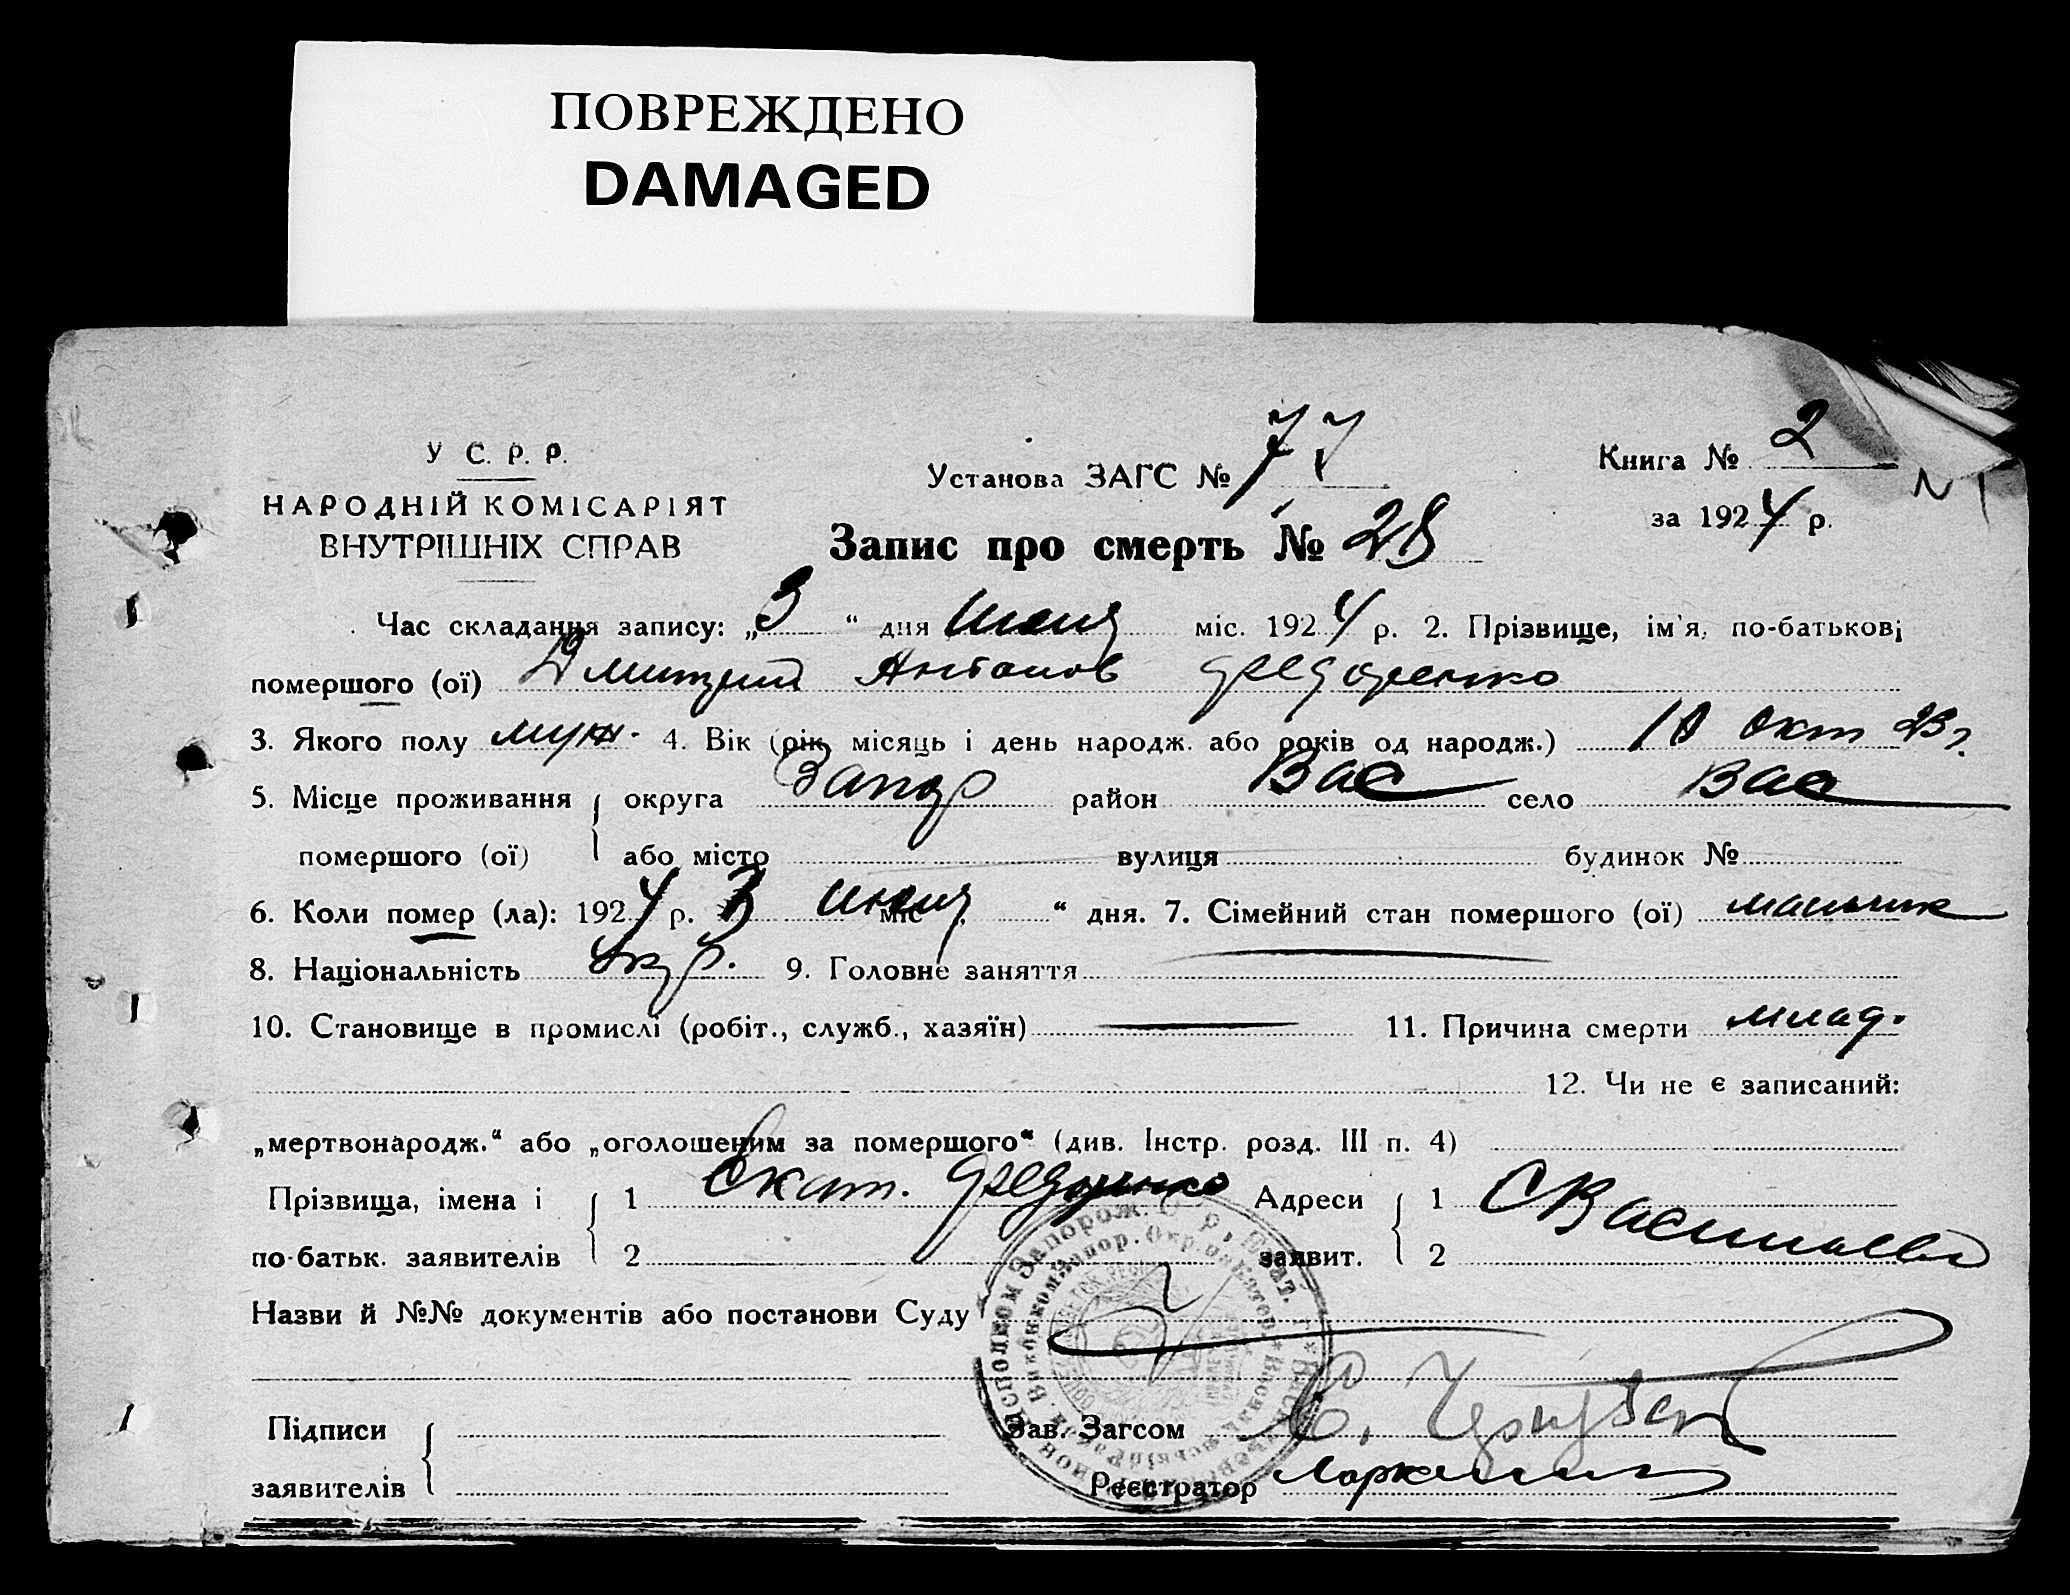 ПОВРЕЖДЕНО
DAMAGED
У С. Р. Р.
НАРОДНІЙ КОМІСАРІЯТ
ВНУТРІШНІХ СПРАВ
Установа ЗАГС № 77
Книга № 2
за 1924 р.
Запис про смерть № 28
Час складання запису: „3“ дня июня міс. 1924 р. 2. Прізвище, ім'я, по-батькові
помершого (ої) Дмитрий Антонов Федоренко
3. Якого полу муж. 4. Вік (рік, місяць і день народж. або років од народж.) 10 окт 23 г.
5. Місце проживання округа Запор район Вас село Вас
помершого (ої) або місто вулиця будинок №
6. Коли помер (ла): 1924 р. 3 июня міс “ дня. 7. Сімейний стан помершого (ої) мальчик
8. Національність Укр. 9. Головне заняття
10. Становище в промислі (робіт., служб., хазяїн) 11. Причина смерти млад.
12. Чи не є записаний:
„мертвонародж.“ або „оголошеним за помершого“ (див. Інстр. розд. III п. 4)
Прізвища, імена і 1 Екат. Федоренко Адреси 1 С Васильев
по-батьк. заявителів 2 заявит. 2
Назви й №№ документів або постанови Суду
Підписи Зав. Загсом
заявителів Реєстратор